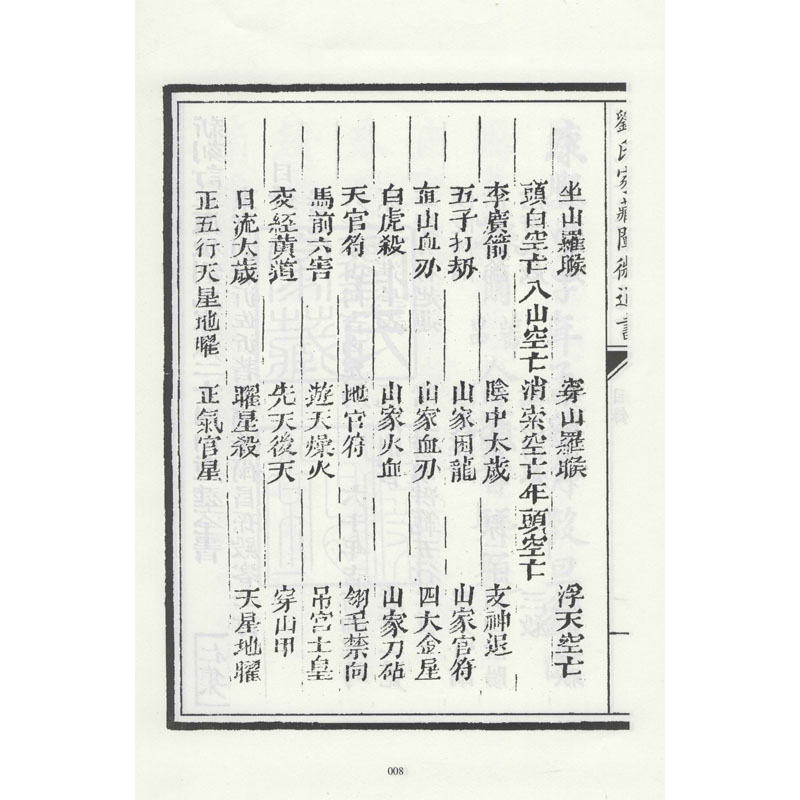 劉氏家藏闡微通書
目錄
坐山羅睺 穿山羅睺 浮天空亡
頭白空亡八山空亡消索空亡年頭空亡
李廣箭 陰中太歲 支神退
五子打劫 山家困龍 山家官符
血山血刃 山家血刃 四大金星
白虎殺 山家火血 山家刀砧
天官符 地官符 翎毛禁向
馬前六害 遊天燥火 吊宮土皇
亥經黃道 先天後天 穿山甲
日流太歲 曜星殺 天星地曜
正五行天星地曜 正氣官星
008